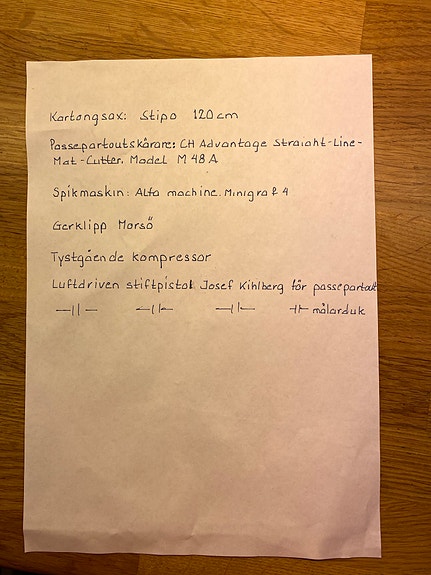 Kartongsax: Stipo 120cm
Passepartoutskärare: CH Advantage Straight-Line-
Mat-Cutter. Model M 48 A
Spikmaskin: Alfa machine. Minigraf 4
Gerklipp Morsö
Tystgående kompressor
Luftdriven stiftpistol Josef Kihlberg för passepartout
—||— —||— —||— —||— målarduk